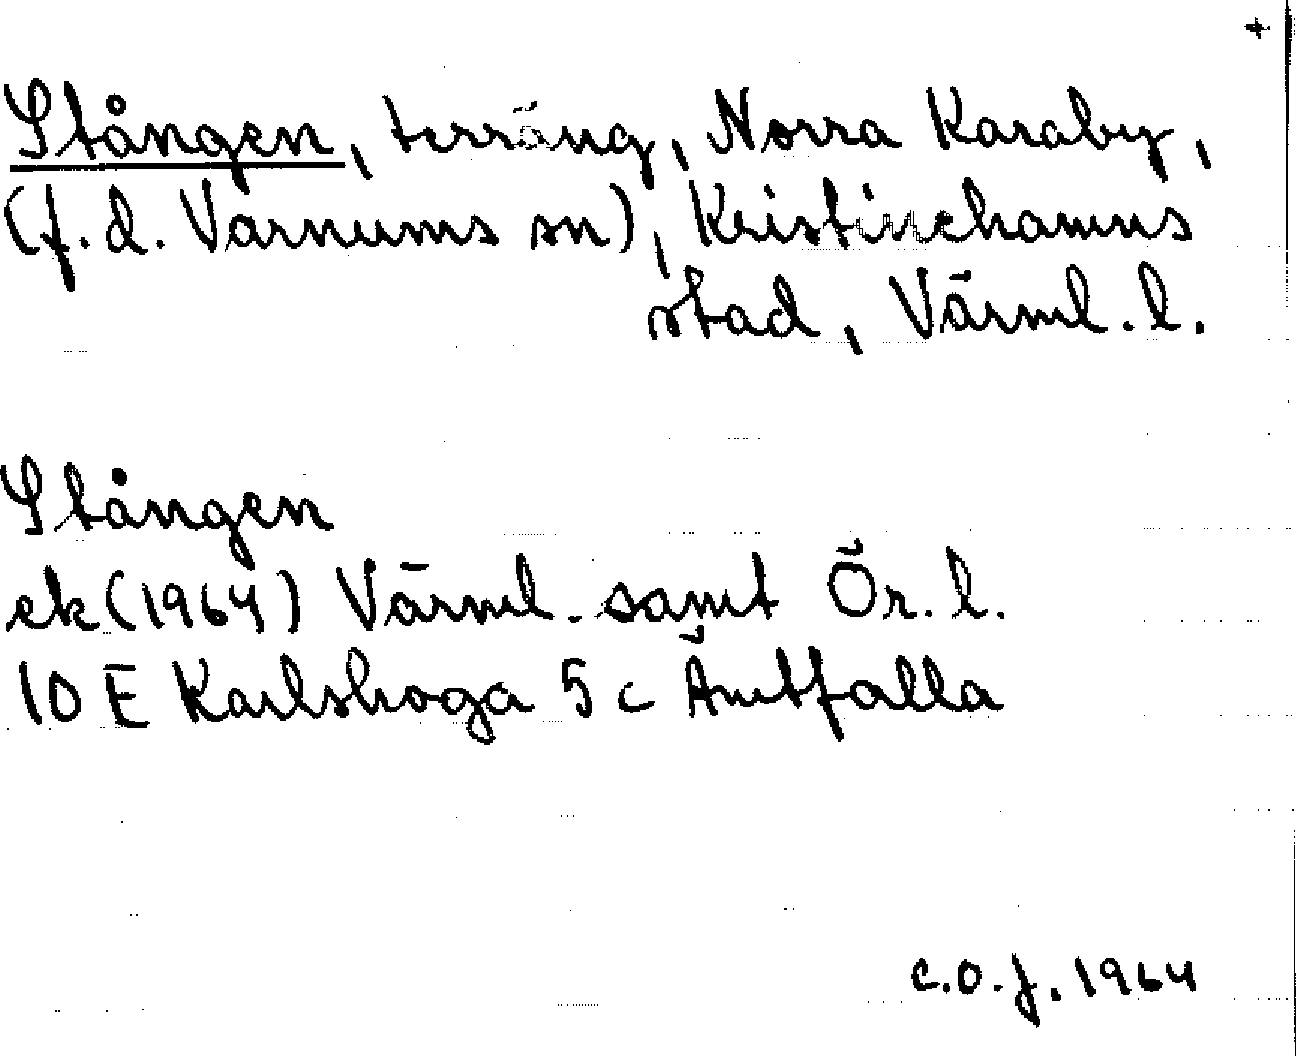 +
Stången, terräng, Norra Karaby,
(f.d. Varnums sn), Kristinehamns
stad, Värml. l.
Stången
ek (1964) Värml. samt Ör. l.
10 E Karlskoga 5 c Åmtfalla
C.O.J. 1964